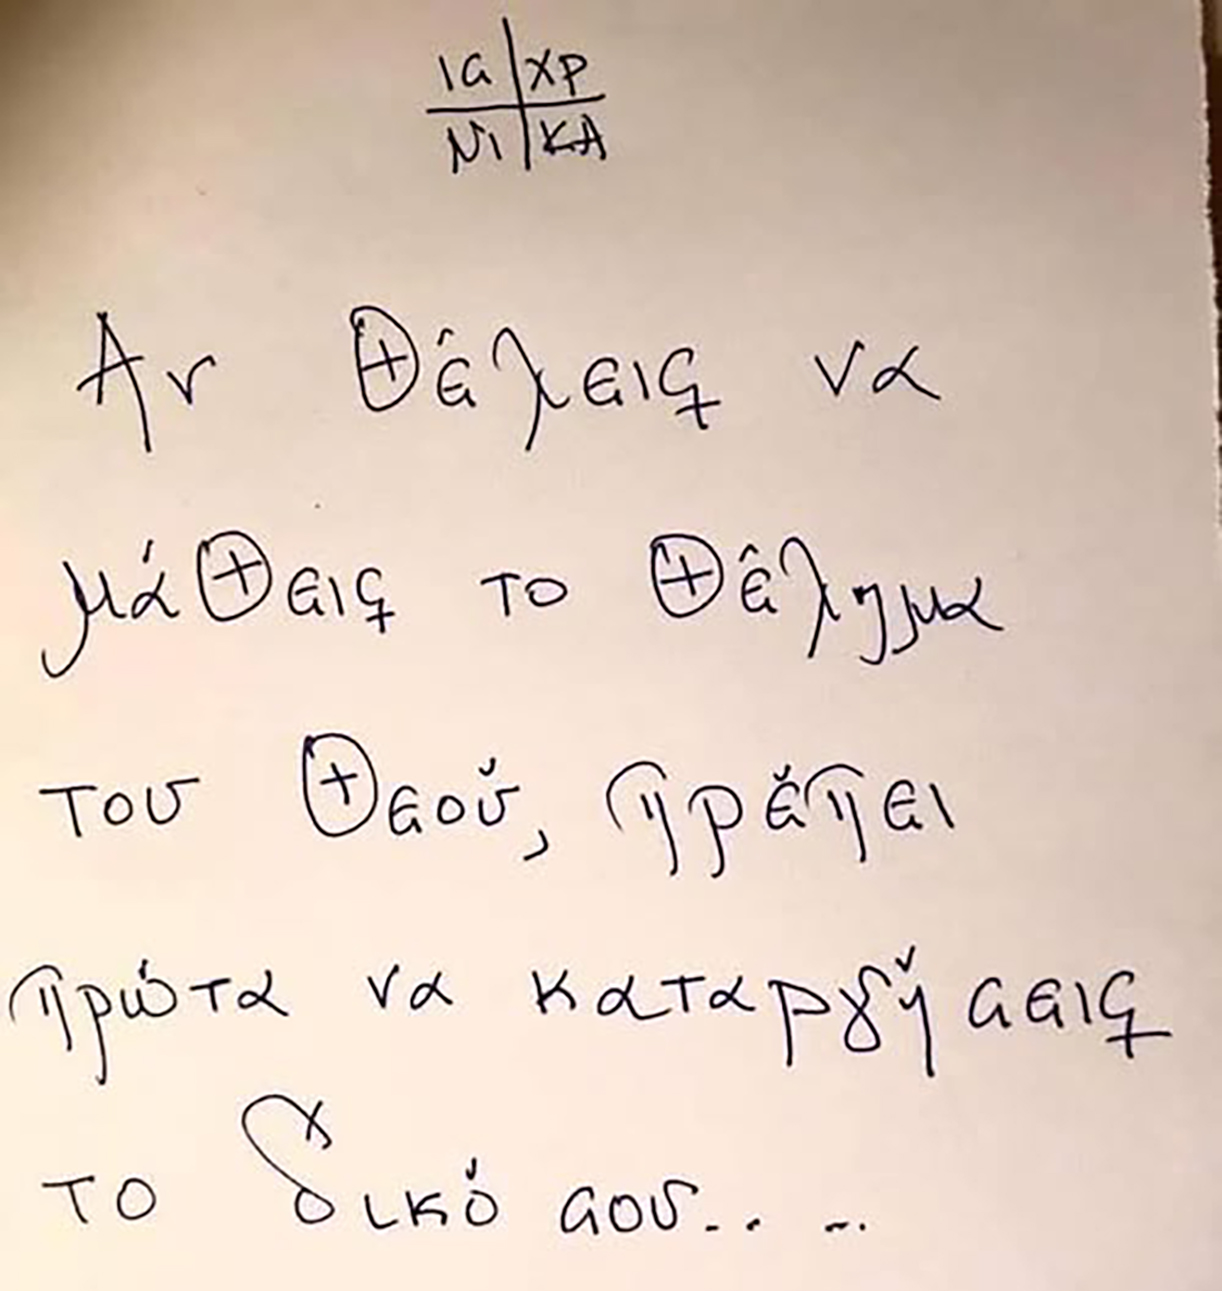 ΙC ΧΡ
ΝΙ ΚΑ
Αν Θέλεις να
μάΘεις το Θέλημα
του Θεού, πρέπει
πρώτα να καταργήσεις
το δικό σου.. ..